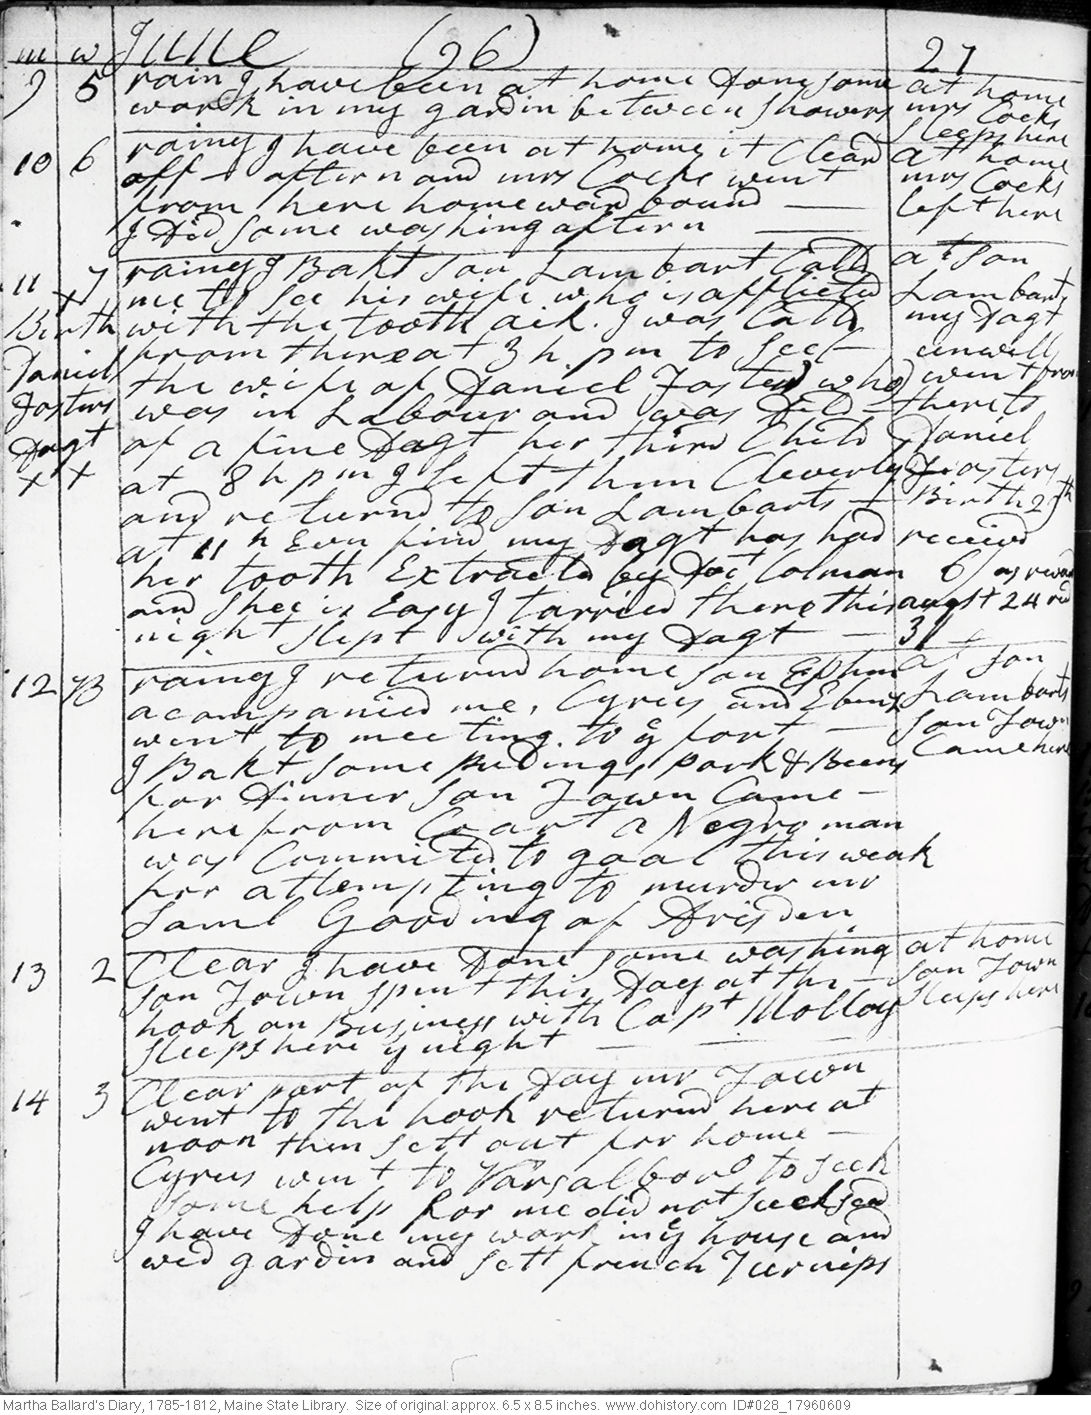 m w June (96) 27
9 5 rain I have been at home Done some at home
work in my gardin between Showers mrs Cocks
Sleeps here
10 6 rainy I have been at home it Cleard at home
off - aftern and mrs Cocks went mrs Cocks
from here homeward bound — left here
I Did Some washing aftern —
11 7 rainy I Bakt Son Lambart Calld at Son
me to See his wife who is afflicted Lambarts
Birth with the tooth aik. I was Calld my Dagt
from there at 3 h pm to See unwell
Daniel the wife of Daniel Foster who went from
Fosters was in Labour and was Deld - there to
Dagt of a fine Dagt her third Child Daniel
x x at 8 h pm I left them Cleverly Fosters
and returnd to Son Lambarts - Birth 29th
at 11 h Evn find my Dagt has had received
her tooth Extracted by Doct Colman 6/ as reward
and Shee is Easy I tarried there this augst 24 red
night Slept with my Dagt — 3/
12 B rainy I returnd home Son Ephm at Son
acompanied me, Cyrus and Ebenr Lambarts
went to meeting to ye fort — Son Town
I Bakt Some Pudings, pork & Beens Came here
for Dinner Son Town Came -
here from Coart a Negro man
was Committed to goal this weak
for attempting to murder mr
Saml Gooding of Drisden
13 2 Clear I have Done some washing at home
Son Town Spent this Day at the - Son Town
hook on Business with Capt Molloy Sleeps here
Sleeps here ys night — — —
14 3 Clear part of the Day mr Town
went to the hook returnd here at
noon then Sett out for home -
Cyrus went to Varsalboro to Seek
Some help for me did not Seckseed
I have Done my work in ye house and
wed gardin and Sett french Turnips
Martha Ballard's Diary, 1785-1812, Maine State Library. Size of original: approx. 6.5 x 8.5 inches. www.dohistory.com ID#028_17960609